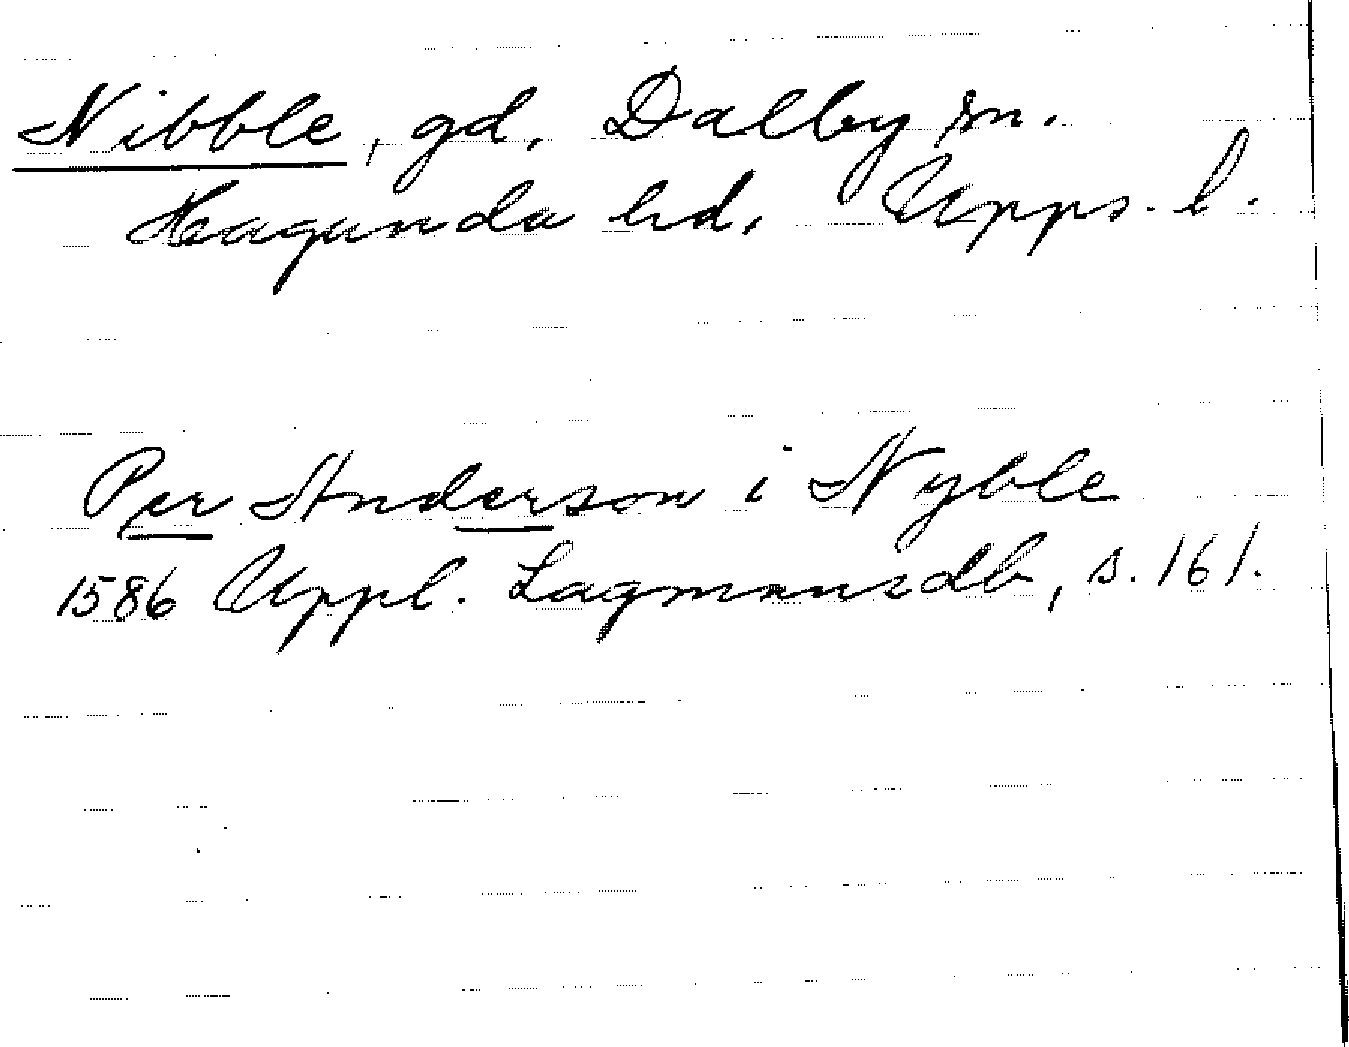 Nibble, gd. Dalby sn.
Hagunda hd. Upps. l.
Per Anderson i Nyble
1586 Uppl. Lagmansdb, s. 161.